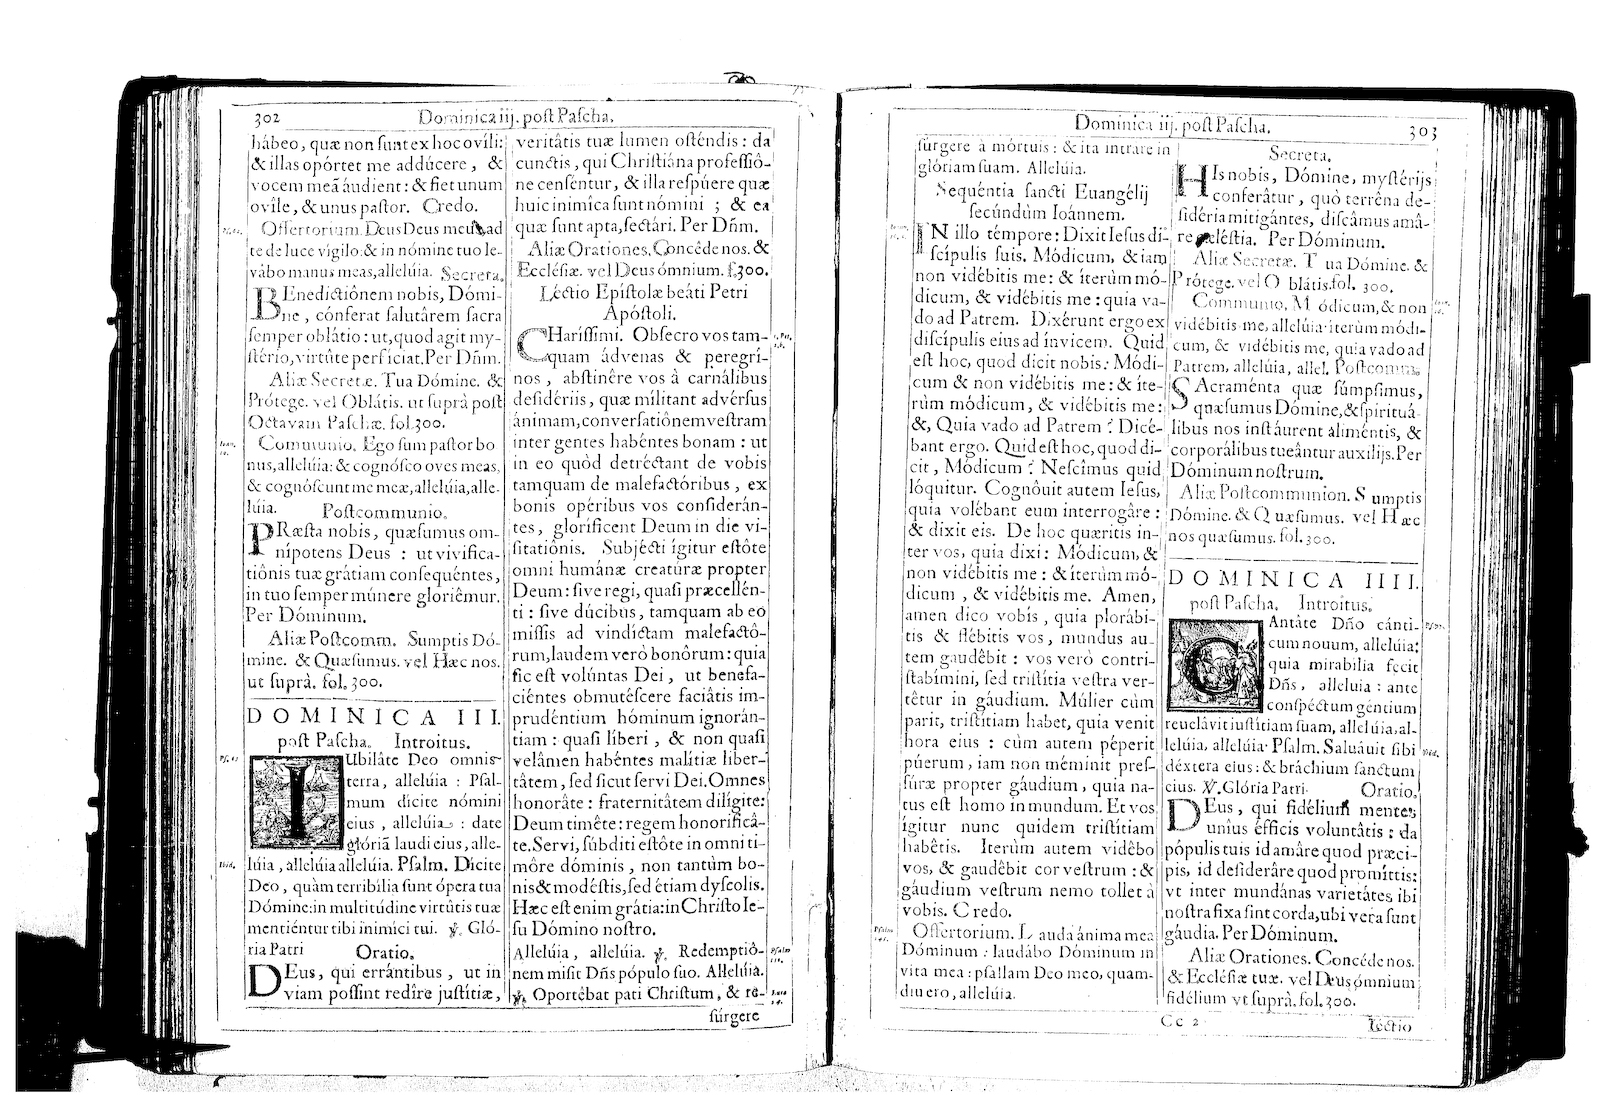 302
Dominica iij. post Pascha.
hábeo, quæ non sunt ex hoc ovíli:
& illas opórtet me addúcere, &
vocem meã áudient: & fiet unum
ovîle, & unus pastor. Credo.
Offertorium. Deus Deus meus ad
te de luce vigilo: & in nómine tuo le-
vábo manus meas, allelúia. Secreta.
BEnedictiônem nobis, Dómi-
ne, cónferat salutârem sacra
semper oblâtio: ut, quod agit my-
stério, virtûte perficiat. Per Dñm.
Aliæ Secretæ. Tua Dómine. &
Prótege. vel Oblâtis. ut suprà post
Octavam Paschæ. fol. 300.
Communio. Ego sum pastor bo
nus, allelúia: & cognósco oves meas,
& cognóscunt me meæ, allelúia, alle-
lúia. Postcommunio.
PRæsta nobis, quæsumus om-
nípotens Deus : ut vivifica-
tiônis tuæ grátiam consequéntes,
in tuo semper múnere gloriêmur.
Per Dóminum.
Aliæ Postcomm. Sumptis Dó-
mine. & Quæsumus. vel Hæc nos.
ut suprà. fol. 300.
DOMINICA III.
post Pascha. Introitus.
IUbilâte Deo omnis
terra, allelúia : Psal-
mum dicite nómini
eius, allelúia : date
glóriã laudi eius, alle-
lúia, allelúia allelúia. Psalm. Dicite
Deo, quàm terribilia sunt ópera tua
Dómine: in multitúdine virtûtis tuæ
mentiéntur tibi inimíci tui. ℣. Gló-
ria Patri Oratio.
DEus, qui errántibus, ut in
viam possint redîre justítiæ,
veritâtis tuæ lumen osténdis : da
cunctis, qui Christiána professiô-
ne censéntur, & illa respúere quæ
huic inimíca sunt nómini ; & ea
quæ sunt apta, sectári. Per Dñm.
Aliæ Orationes. Concéde nos. &
Ecclésiæ. vel Deus ómnium. f. 300.
Léctio Epístolæ beáti Petri
Apóstoli.
CHaríssimi. Obsecro vos tam-
quam ádvenas & peregrí-
nos, abstinêre vos à carnálibus
desidériis, quæ mílitant advérsus
ánimam, conversatiônem vestram
inter gentes habéntes bonam : ut
in eo quòd detréctant de vobis
tamquam de malefactóribus, ex
bonis opéribus vos considerán-
tes, gloríficent Deum in die vi-
sitatiônis. Subjécti ígitur estôte
omni humánæ creatúræ propter
Deum: sive regi, quasi præcellén-
ti : sive dúcibus, tamquam ab eo
missis ad vindíctam malefactô-
rum, laudem verò bonôrum: quia
sic est volúntas Dei, ut benefa-
ciéntes obmutéscere faciâtis im-
prudéntium hóminum ignorán-
tiam : quasi líberi, & non quasi
velâmen habéntes malítiæ liber-
tâtem, sed sicut servi Dei. Omnes
honorâte : fraternitâtem dilígite:
Deum timête: regem honorificâ-
te. Servi, súbditi estôte in omni ti-
môre dóminis, non tantùm bo-
nis & modéstis, sed étiam dyscolis.
Hæc est enim grátia: in Christo Ie-
su Dómino nostro.
Allelúia, allelúia. ℣. Redemptiô-
nem misit Dñs pópulo suo. Allelúia.
℣. Oportêbat pati Christum, & re-
súrgere
Dominica iij. post Pascha.
303
súrgere à mórtuis : & ita intrare in
glóriam suam. Allelúia.
Sequéntia sancti Euangélij
secúndùm Ioánnem.
IN illo témpore: Dixit Iesus di-
scípulis suis. Módicum, & iam
non vidébitis me: & íterùm mó-
dicum, & vidébitis me : quía va-
do ad Patrem. Dixérunt ergo ex
discípulis eius ad ínvicem. Quid
est hoc, quod dicit nobis: Módi-
cum & non vidébitis me: & íte-
rùm módicum, & vidébitis me:
&, Quia vado ad Patrem? Dicé-
bant ergo. Quid est hoc, quod di-
cit, Módicum? Nescîmus quid
lóquitur. Cognôuit autem Iesus,
quia volébant eum interrogâre:
& dixit eis. De hoc quæritis in-
ter vos, quía dixi: Módicum, &
non vidébitis me : & íterùm mó-
dicum, & vidébitis me. Amen,
amen dico vobis, quia plorábi-
tis & flébitis vos, mundus au-
tem gaudêbit : vos verò contri-
stabímini, sed tristítia vestra ver-
têtur in gáudium. Múlier cùm
parit, tristítiam habet, quia venit
hora eius : cùm autem péperit
púerum, iam non méminit pres-
súræ propter gáudium, quia na-
tus est homo in mundum. Et vos
ígitur nunc quidem tristítiam
habêtis. Iterùm autem vidêbo
vos, & gaudêbit cor vestrum : &
gáudium vestrum nemo tollet à
vobis. Credo.
Offertorium. Lauda ánima mea
Dóminum : laudábo Dóminum in
vita mea : psallam Deo meo, quam-
diu ero, allelúia.
Cc 2
Secreta.
HIs nobis, Dómine, mystérijs
conferâtur, quò terrêna de-
sidéria mitigántes, discâmus amâ-
re cæléstia. Per Dóminum.
Aliæ Secretæ. Tua Dómine. &
Prótege. vel Oblátis. fol. 300.
Communio. Módicum, & non
vidébitis me, allelúia: iterùm módi-
cum, & vidébitis me, quia vado ad
Patrem, allelúia, allel. Postcomm.
SAcraménta quæ súmpsimus,
quæsumus Dómine, & spirituá-
libus nos instáurent aliméntis, &
corporálibus tueântur auxílijs. Per
Dóminum nostrum.
Aliæ Postcommunion. Sumptis
Dómine. & Quæsumus. vel Hæc
nos quæsumus. fol. 300.
DOMINICA IIII.
post Pascha. Introitus.
CAntâte Dño cánti-
cum nouum, allelúia:
quia mirabilia fecit
Dñs, alleluia : ante
conspéctum géntium
reuelâvit iustítiam suam, allelúia, al-
lelúia, allelúia. Psalm. Saluâuit sibi
déxtera eius: & bráchium sanctum
eius. ℣. Glória Patri. Oratio.
DEus, qui fidélium mentes
uníus éfficis voluntâtis : da
pópulis tuis id amâre quod præci-
pis, id desiderâre quod promíttis:
vt inter mundánas varietátes ibi
nostra fixa sint corda, ubi vera sunt
gáudia. Per Dóminum.
Aliæ Orationes. Concéde nos.
& Ecclésiæ tuæ. vel Deus ómnium
fidélium vt suprà. fol. 300.
Léctio